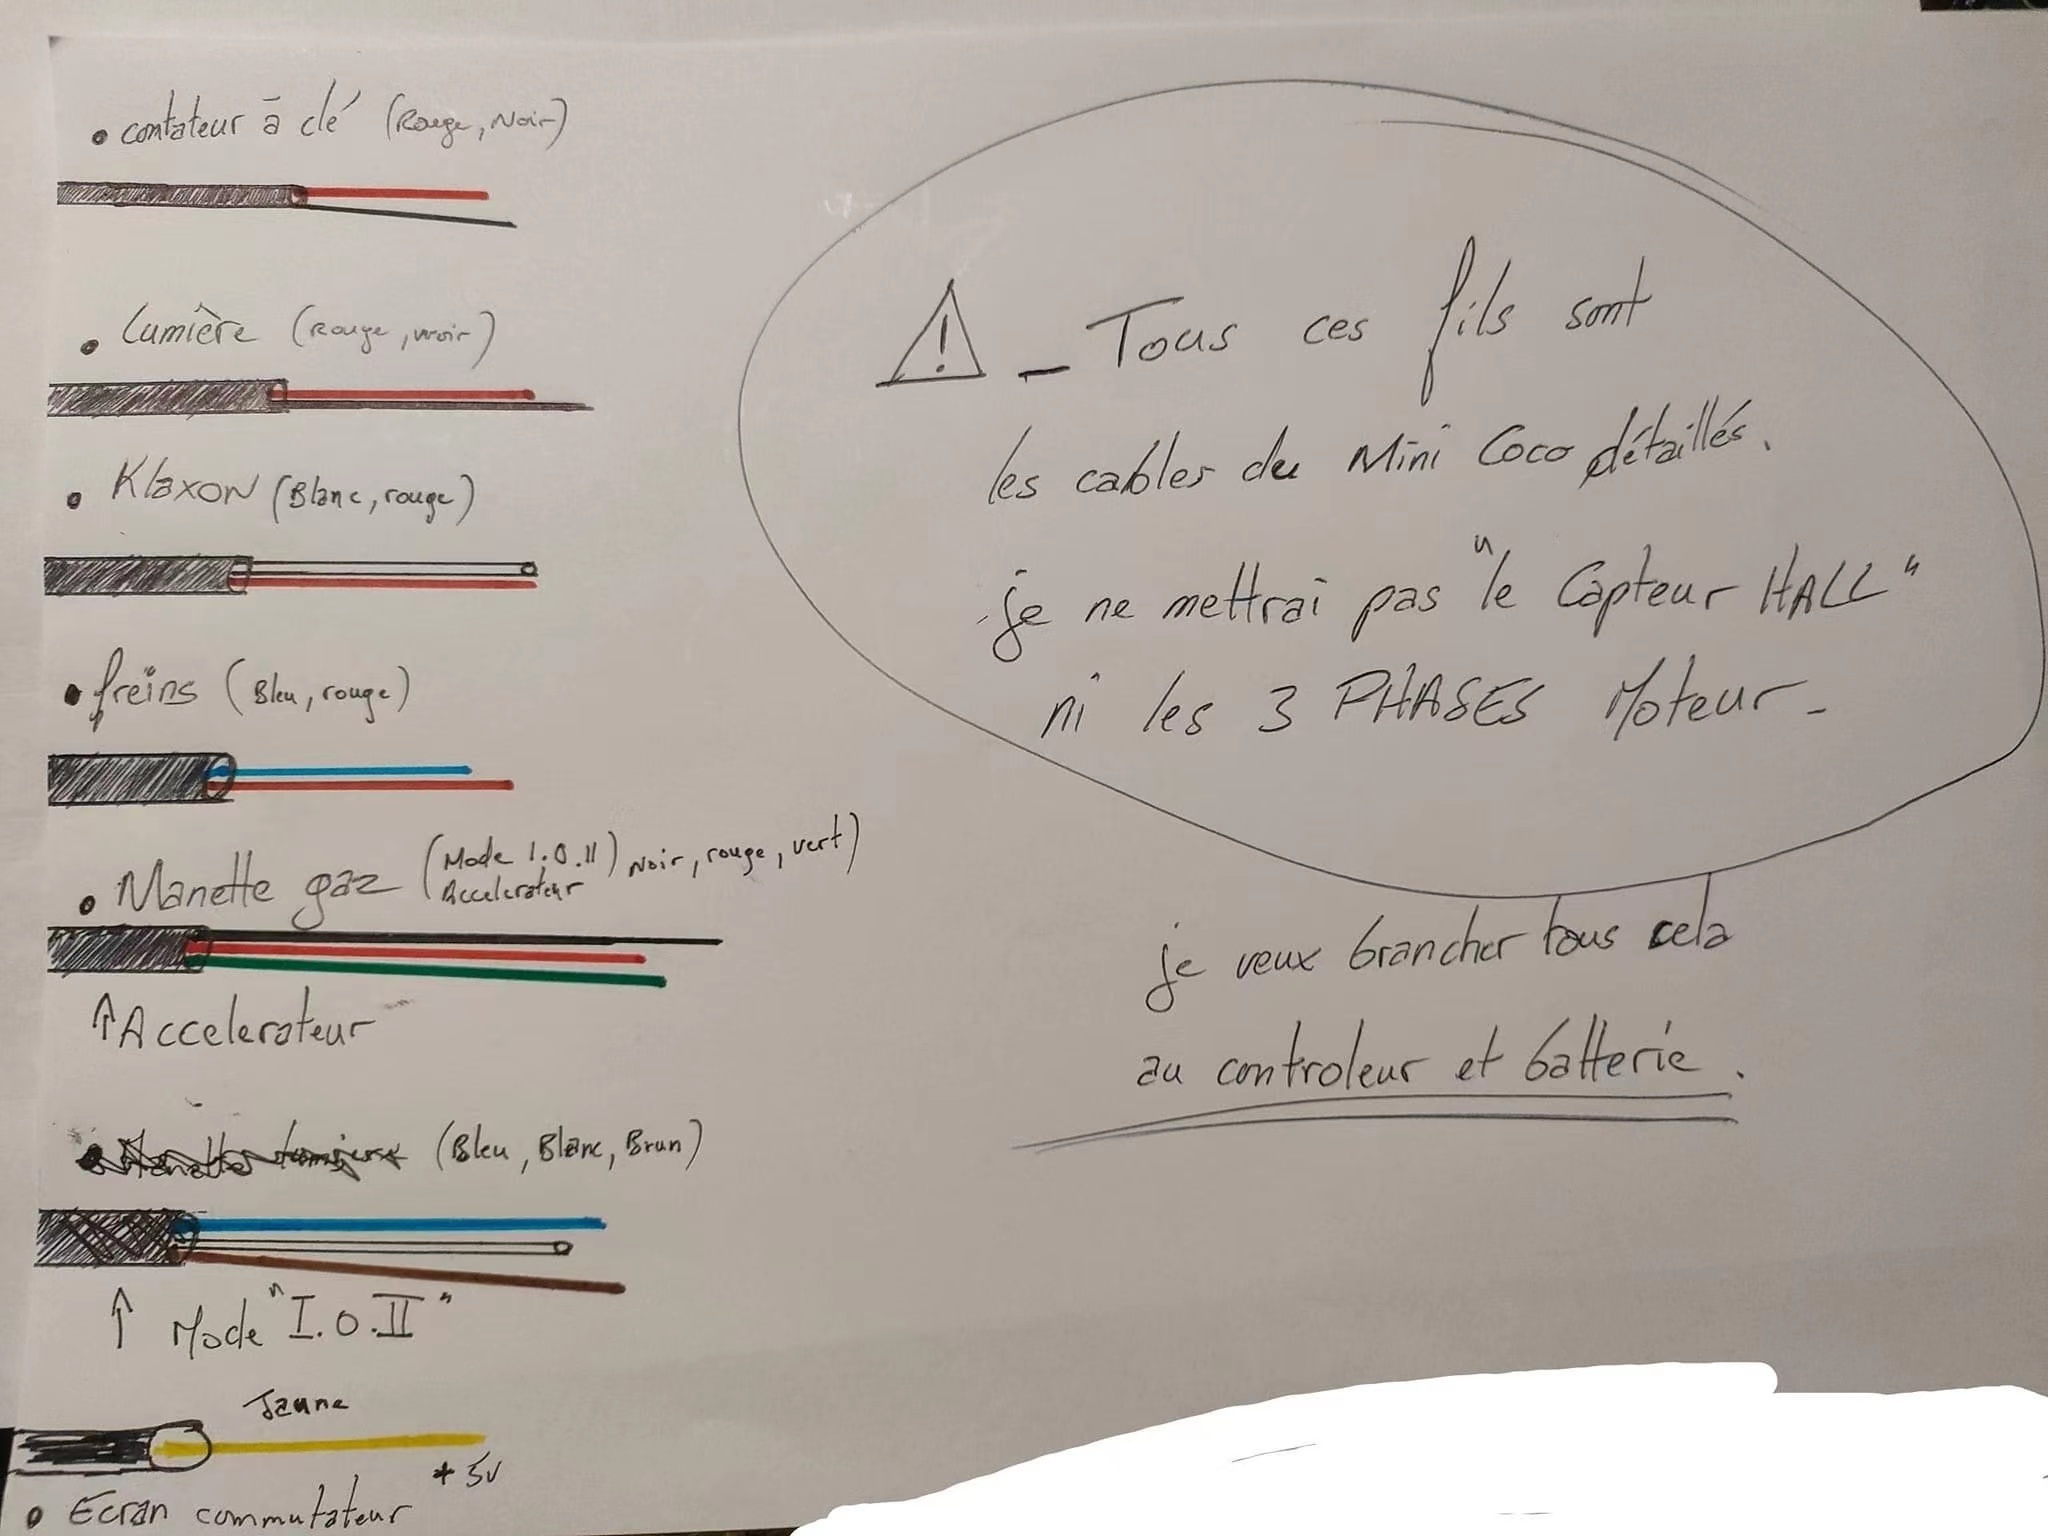 contateur à clé (Rouge, Noir)
Lumière (Rouge, noir)
Klaxon (Blanc, rouge)
freins (Bleu, rouge)
Manette gaz (Mode I.O.II) Noir, rouge, vert)
Accelerateur
↑ Accelerateur
(Bleu, Blanc, Brun)
↑ Mode "I.O.II"
Jaune
+ 5V
Ecran commutateur
! _ Tous ces fils sont
les cables du Mini Coco détaillés.
je ne mettrai pas "le Capteur HALL"
ni les 3 PHASES Moteur _
je veux brancher tous cela
au controleur et batterie.